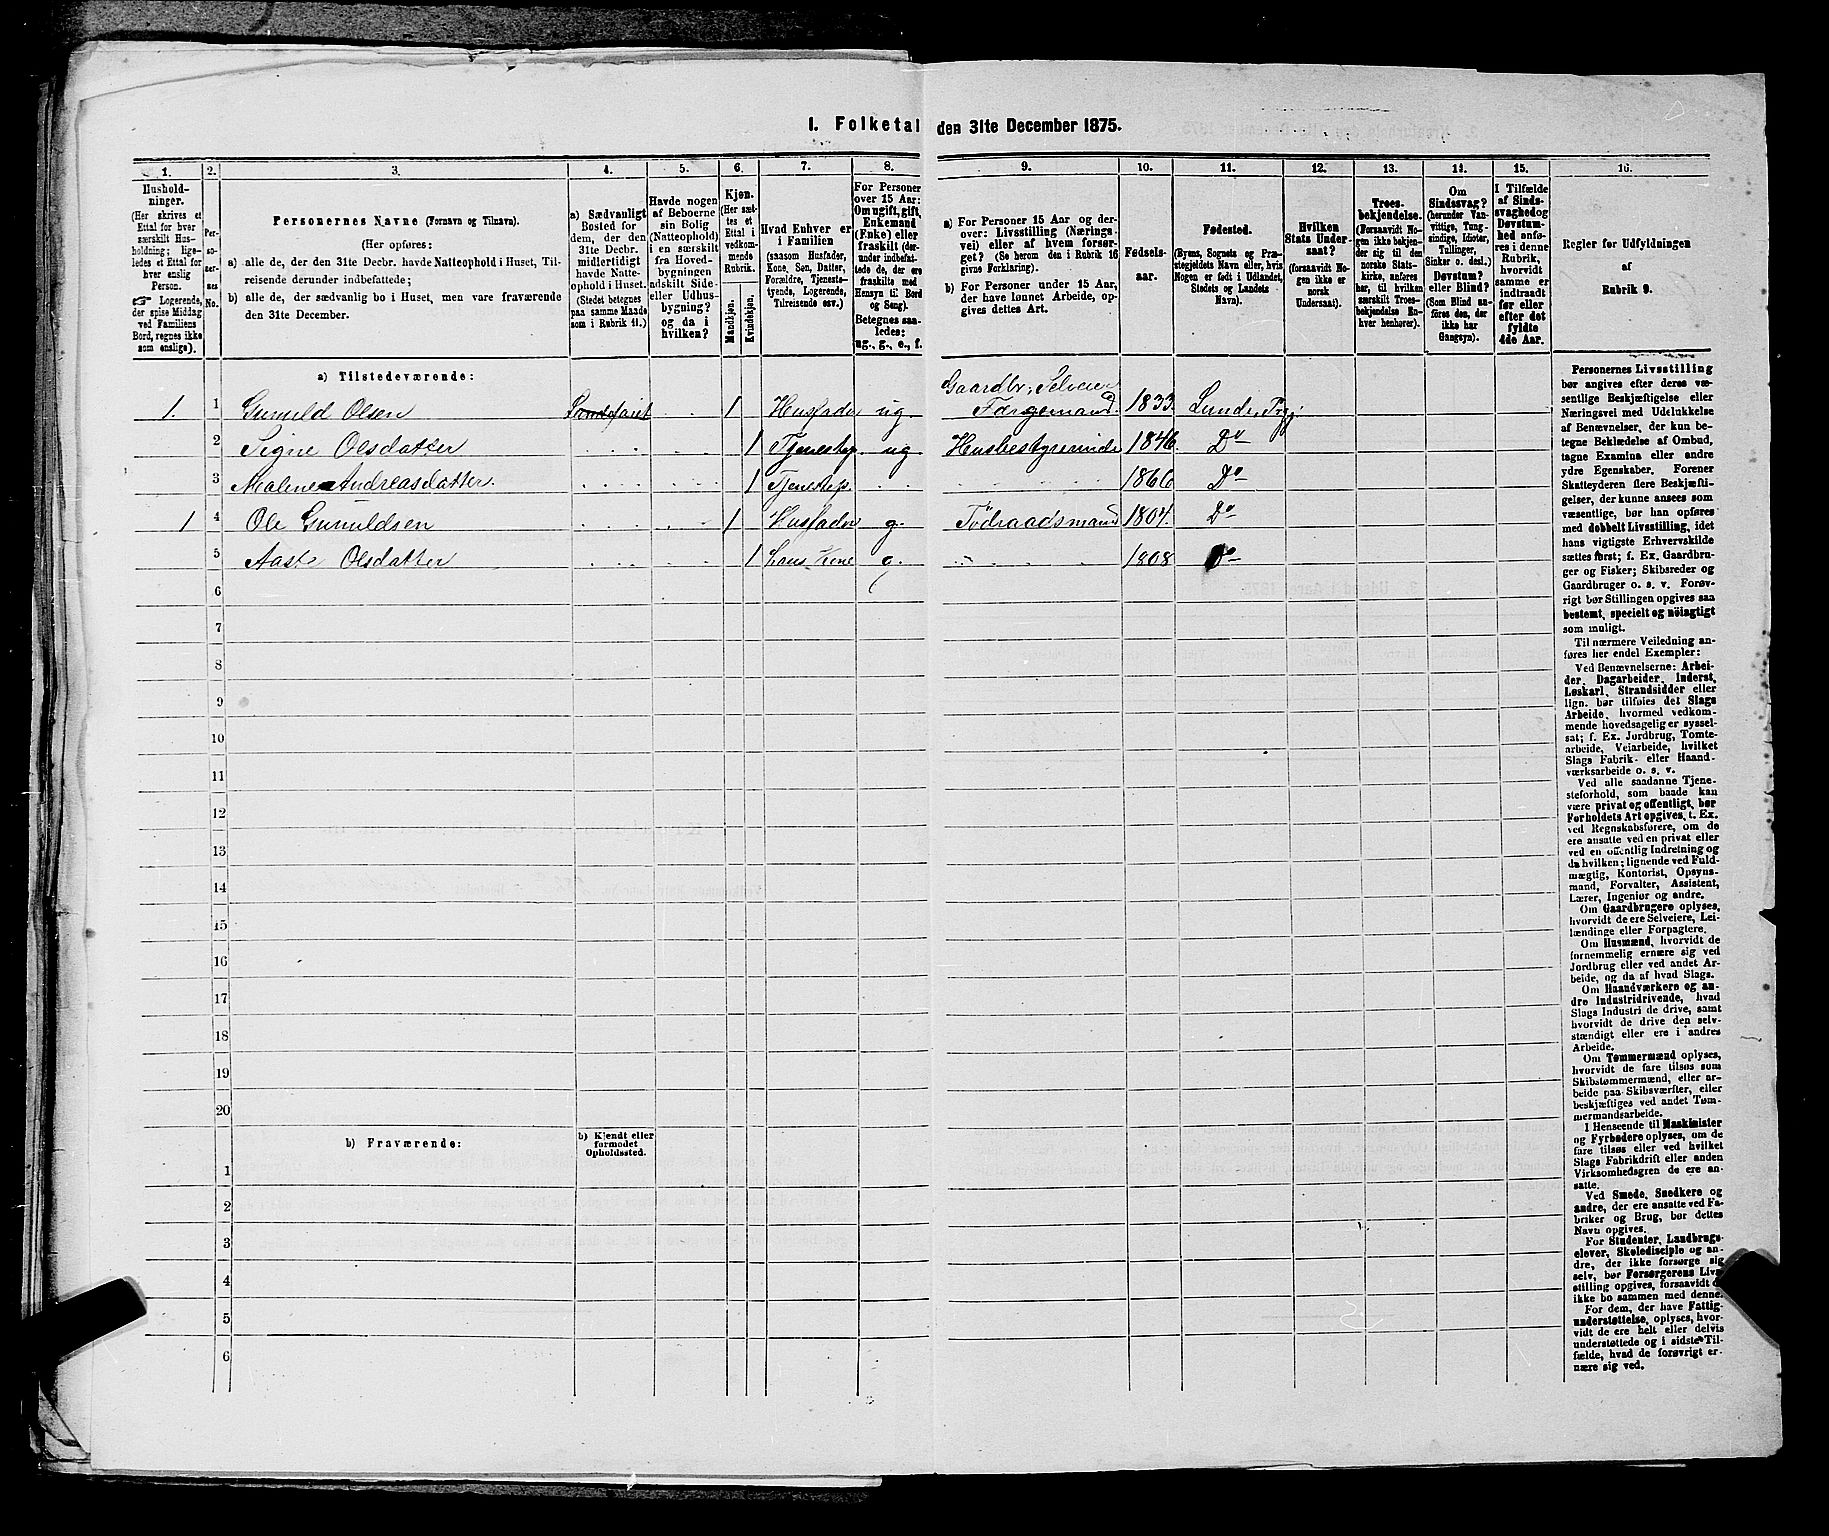 I. Folketal den 31te December 1875.
1.
2.
3.
4.
5.
6.
7.
8.
9.
10.
11.
12.
13.
14.
15.
16.
Hushold-
ninger.
(Her skrives et
Ettal for hver
særskilt Hus-
holdning; lige-
ledes et Ettal for
hver enslig
Person.
☞ Logerende,
der spise Middag
ved Familiens
Bord, regnes ikke
som enslige).
Per-
so-
ner-
nes
No.
Personernes Navne (Fornavn og Tilnavn).
(Her opføres:
a) alle de, der den 31te Decbr. havde Natteophold i Huset, Til-
reisende derunder indbefattede;
b) alle de, der sædvanlig bo i Huset, men vare fraværende
den 31te December.
a) Sædvanligt
Bosted for
dem, der den
31te Decbr.
midlertidigt
havde Natte-
ophold i Huset.
(Stedet betegnes
paa samme Maade
som i Rubrik 11.)
Havde nogen
af Beboerne
sin Bolig
(Natteophold)
i en særskilt
fra Hoved-
bygningen
adskilt Side-
eller Udhus-
bygning?
og da i
hvilken?
Kjøn.
(Her sæt-
tes et
Ettal i
vedkom-
mende
Rubrik.
Mandkjøn.
Kvindekjøn.
Hvad Enhver er
i Familien
(saasom Husfader,
Kone, Søn, Datter,
Forældre, Tjeneste-
tyende, Logerende,
Tilreisende osv.)
For Personer
over 15 Aar:
Om ugift, gift,
Enkemand
(Enke) eller
fraskilt (der-
under indbefat-
tede de, der ere
fraskilte med
Hensyn til Bord
og Seng).
Betegnes saa-
ledes:
ug., g., e., f.
a) For Personer 15 Aar og der-
over: Livsstilling (Nærings-
vei) eller af hvem forsør-
get? (Se herom den i Rubrik 16
givne Forklaring).
b) For Personer under 15 Aar,
der have lønnet Arbeide, op-
gives dettes Art.
Fødsels-
aar.
Fødested.
(Byens, Sognets og Præ-
stegjeldets Navn eller, hvis
Nogen er født i Udlandet,
Stedets og Landets
Navn).
Hvilken
Stats Under-
saat?
(forsaavidt No-
gen ikke er
norsk
Undersaat).
Troes-
bekjendelse.
(Forsaavidt No-
gen ikke bekjen-
der sig til den
norske Stats-
kirke, anføres
her, til hvilken
særskilt Troes-
bekjendelse En-
hver henhører).
Om
Sindssvag?
(herunder Van-
vittige, Tung-
sindige, Idioter,
Tullinger,
Sinker o. desl.)
Døvstum?
eller Blind?
(Som Blind an-
føres den, der
ikke har
Gangsyn).
I Tilfælde
af Sinds-
svaghed og
Døvstum-
hed anfø-
res i denne
Rubrik,
hvorvidt
samme er
indtraadt
før eller
efter det
fyldte
4de Aar.
Regler for Udfyldningen
af
Rubrik 9.
a) Tilstedeværende:
1. 1 Gunuld Olsen Sandefaret 1 Husfader ug. Gaardbr; Selveier Færgemand 1833. Lunde, Prgj.
2 Signe Olsdatter 1 Tjenestep ug Husbestyrerinde 1846. Do
3 Malene Andreasdatter. 1 Tjenestep. 1866 Do
1 4 Ole Gunuldsen 1 Husfader g. Födraadsmand 1804. Do
5 Aaste Olsdatter 1 hans Kone g. 1808 Do
6
7
8
9
10
11
12
13
14
15
16
17
18
19
20
b) Fraværende:
b) Kjendt eller
formodet
Opholdssted.
1
2
3
4
5
6
Personernes Livsstilling
bør angives efter deres væ-
sentlige Beskjæftigelse eller
Næringsvei med Udelukkelse
af Benævnelser, der kun be-
tegne Beklædelse af Ombud,
tagne Examina eller andre
ydre Egenskaber. Forener
Skatteyderen flere Beskjæfti-
gelser, der kunne ansees som
væsentlige, bør han opføres
med dobbelt Livsstilling, idet
hans vigtigste Erhvervskilde
sættes først; f. Ex. Gaardbru-
ger og Fisker; Skibsreder og
Gaardbruger o. s. v. Forøv-
rigt bør Stillingen opgives saa
bestemt, specielt og nöiagtigt
som muligt.
Til nærmere Veiledning an-
føres her endel Exempler:
Ved Benævnelserne: Arbei-
der, Dagarbeider, Inderst,
Løskarl, Strandsidder eller
lign. bør tilføies det Slags
Arbeide, hvormed vedkom-
mende hovedsagelig er syssel-
sat; f. Ex. Jordbrug, Tomte-
arbeide, Veiarbeide, hvilket
Slags Fabrik- eller Haand-
værksarbeide o. s. v.
Ved alle saadanne Tjene-
steforhold, som baade kan
være privat og offentligt, bør
Forholdets Art opgives, t. Ex.
ved Regnskabsførere, om de
ere ansatte ved en privat eller
ved en offentlig Indretning og
da hvilken; lignende ved Fuld-
mægtig, Kontorist, Opsyns-
mand, Forvalter, Assistent,
Lærer, Ingeniør og andre.
Om Gaardbrugere oplyses,
hvorvidt de ere Selveiere, Lei-
lændinge eller Forpagtere.
Om Husmænd, hvorvidt de
fornemmelig ernære sig ved
Jordbrug eller ved andet Ar-
beide, og da af hvad Slags.
Om Haandværkere og an-
dre Industridrivende, hvad
Slags Industri de drive, samt
hvorvidt de drive den selv-
stændigt eller ere i andres
Arbeide.
Om Tømmermænd oplyses,
hvorvidt de fare tilsøs som
Skibstømmermænd, eller ar-
beide paa Skibsværfter, eller
beskjæftiges ved andet Tøm-
mermandsarbeide.
I Henseende til Maskinister
og Fyrbødere oplyses, om de
fare tilsøs eller ved hvilket
Slags Fabrikdrift eller anden
Virksomhedsgren de ere an-
satte.
Ved Smede, Snedkere og
andre, der ere ansatte ved Fa-
briker og Brug, bør dettes
Navn opgives.
For Studenter, Landbrugs-
elever, Skoledisciple og an-
dre, der ikke forsørge sig
selv, bør Forsørgerens Livs-
stilling opgives, forsaavidt de
ikke bo sammen med denne.
For dem, der have Fattig-
understøttelse, oplyses, hvor-
vidt de ere helt eller delvis
understøttede og i sidste Til-
fælde, hvad de forøvrigt er-
nære sig ved.